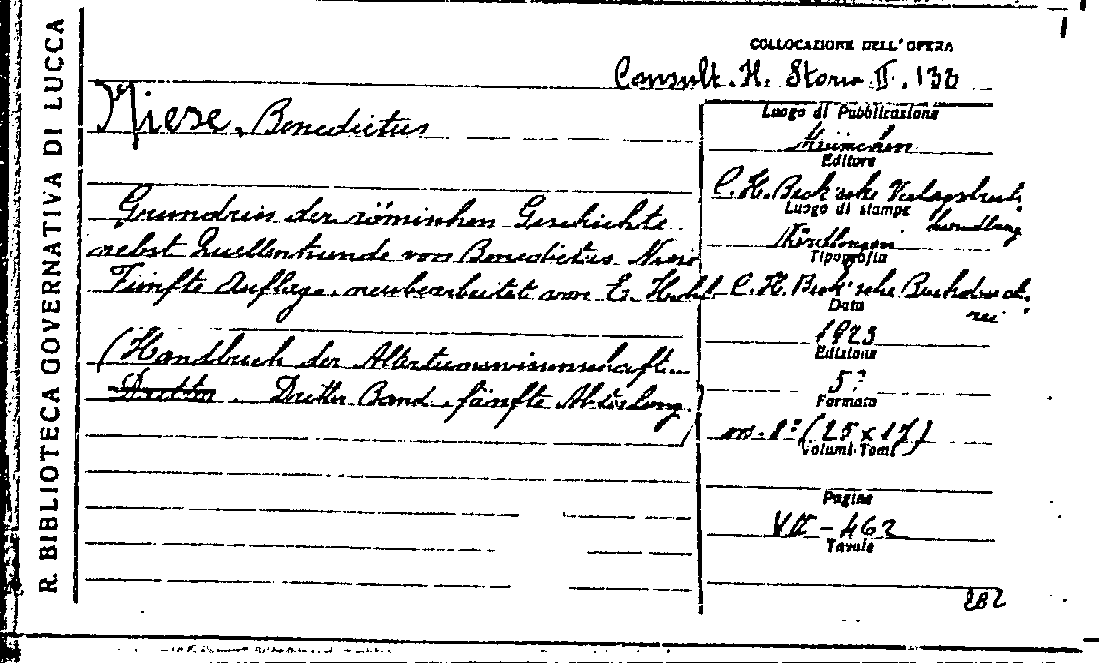 R. BIBLIOTECA GOVERNATIVA DI LUCCA
COLLOCAZIONE DELL'OPERA
Consult. H. Storia II. 138
Niese, Benedictus
Grundriss der römischen Geschichte
nebst Quellenkunde von Benedictus Niese
Fünfte Auflage neubearbeitet von E. Hohl
(Handbuch der Altertumswissenschaft.
Dritter Dritter Band, fünfte Abteilung)
Luogo di Pubblicazione
München
Editore
C. H. Beck'sche Verlagsbuch-
handlung
Luogo di stampa
Nördlingen
Tipografia
C. H. Beck'sche Buchdrucke-
rei
Data
1923
Edizione
5ª
Formato
in-8° (25 x 17)
Volumi-Tomi
Pagine
VII-462
Tavole